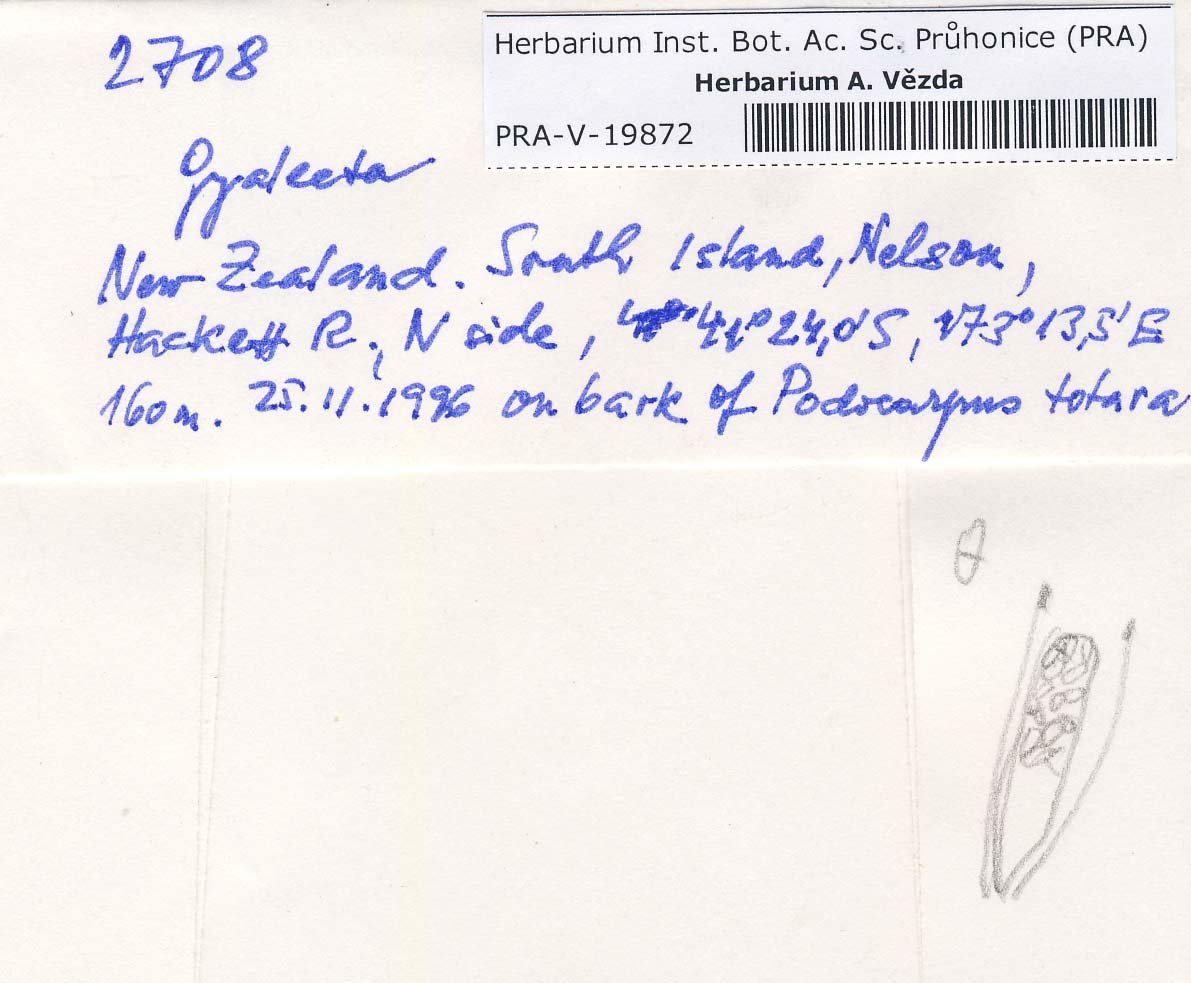 2708
Herbarium Inst. Bot. Ac. Sc. Průhonice (PRA)
Herbarium A. Vězda
PRA-V-19872
Gyalecta
New Zealand. South Island, Nelson,
Hackett R., N side, 41°24,0'S, 173°13,5'E
160m. 25.11.1996 on bark of Podocarpus totara